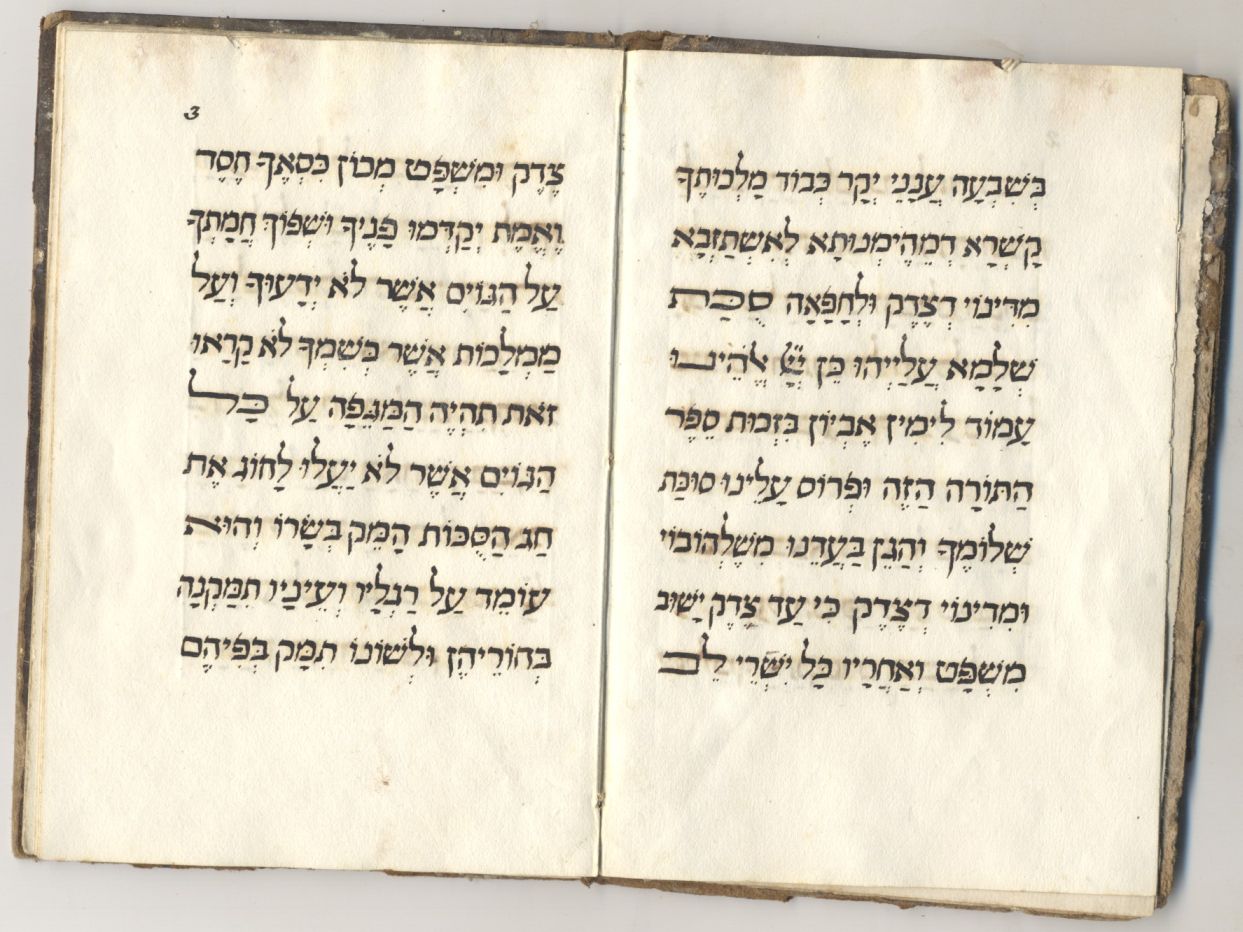 בְּשִׁבְעָה עֲנָנֵי יְקָר כְּבוֹד מַלְכוּתֶךָ
קָשְׁרָא דִמְהֵימְנוּתָא לְאִשְׁתַּזְבָא
מִדִּינוֹי דְצֶדֶק וּלְחָפָאָה סֻכַּת
שְׁלָמָא עֲלַיְיהוּ כֵּן יְיָ אֱלֹהֵינוּ
עֲמוֹד לִימִין אֶבְיוֹן בִּזְכוּת סֵפֶר
הַתּוֹרָה הַזֶּה וּפְרוֹס עָלֵינוּ סוּכַּת
שְׁלוֹמֶךָ וְהַגֵּן בַּעֲדֵנוּ מִשַׁלְהוֹבוֹי
וּמִדִּינוֹי דְצֶדֶק כִּי עַד צֶדֶק יָשׁוּב
מִשְׁפָּט וְאַחֲרָיו כָּל יִשְׁרֵי לֵב
3
צֶדֶק וּמִשְׁפָּט מְכוֹן כִּסְאֶךָ חֶסֶד
וֶאֱמֶת יְקַדְּמוּ פָנֶיךָ וּשְׁפוֹךְ חֲמָתְךָ
עַל הַגּוֹיִם אֲשֶׁר לֹא יְדָעוּךָ וְעַל
מַמְלָכוֹת אֲשֶׁר בְּשִׁמְךָ לֹא קָרָאוּ
זֹאת תִּהְיֶה הַמַּגֵּפָה עַל כָּל
הַגּוֹיִם אֲשֶׁר לֹא יַעֲלוּ לָחוֹג אֶת
חַג הַסֻּכּוֹת הָמֵק בְּשָׂרוֹ וְהוּא
עוֹמֵד עַל רַגְלָיו וְעֵינָיו תִּמַּקְנָה
בְּחוֹרֵיהֶן וּלְשׁוֹנוֹ תִּמַּק בְּפִיהֶם